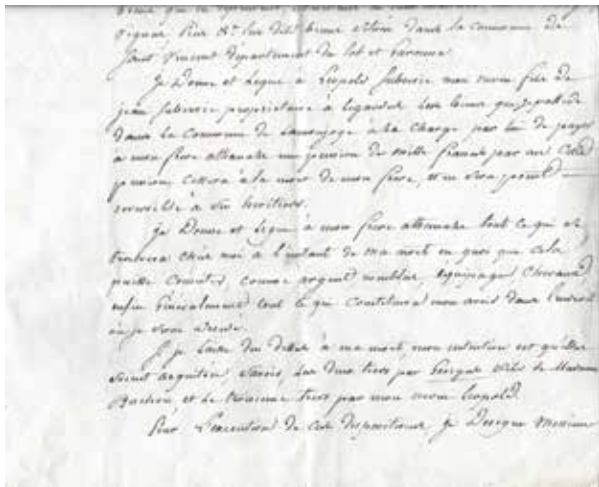 Saint Vincent département du lot et Garonne.
Je Donne et Legue a Léopold Subervie mon neveu fils de
jean Subervie propriétaire a Legardat les biens que je possède
dans la Commune de a la Charge par lui de payer
a mon frere alexandre une pension de mille francs par an Cette
pension Cessera à la mort de mon frere, et ne sera point
reversible à ses héritiers.
je Donne et Legue à mon frere alexandre tout ce qui se
trouvera chez moi a l'instant de ma mort en quoi que cela
puisse Consister, comme argent meubles, équipages Chevaux
enfin Généralement tout ce qui Constituera mon avoir dans l'endroit
ou je serai
Si je laisse des dettes à ma mort, mon intention est qu'elles
soient acquitées Savoir, les deux tiers par fils de Madame
et le troisieme tiers par mon neveu Léopold.
Pour L'execution de ces dispositions je Designe Monsieur